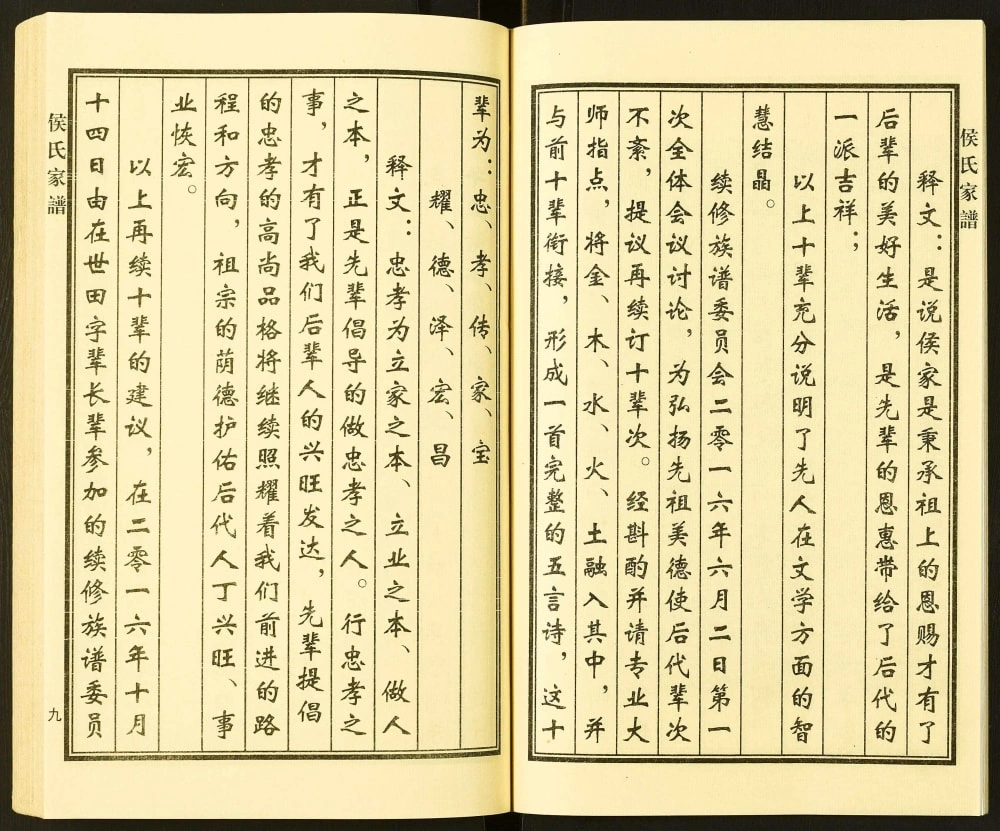 侯氏家譜
释文：是说侯家是秉承祖上的恩赐才有了
后辈的美好生活，是先辈的恩惠带给了后代的
一派吉祥；
以上十辈充分说明了先人在文学方面的智
慧结晶。
续修族谱委员会二零一六年六月二日第一
次全体会议讨论，为弘扬先祖美德使后代辈次
不紊，提议再续订十辈次。经斟酌并请专业大
师指点，将金、木、水、火、土融入其中，并
与前十辈衔接，形成一首完整的五言诗，这十
辈为：忠、孝、传、家、宝
耀、德、泽、宏、昌
释文：忠孝为立家之本、立业之本、做人
之本，正是先辈倡导的做忠孝之人。行忠孝之
事，才有了我们后辈人的兴旺发达，先辈提倡
的忠孝的高尚品格将继续照耀着我们前进的路
程和方向，祖宗的荫德护佑后代人丁兴旺、事
业恢宏。
以上再续十辈的建议，在二零一六年十月
十四日由在世田字辈长辈参加的续修族谱委员
侯氏家譜
九